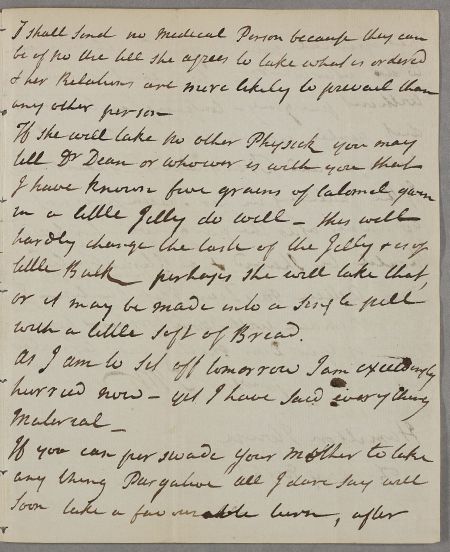 I shall send no medical Person because they can
be of no Use till she agrees to take what is ordered
& her Relations are more likely to prevail than
any other person
If she will take no other Physick you may
tell Dr Dean or whoever is with you that
I have known five grains of Calomel given
in a little Jelly do well – this will
hardly change the taste of the Jelly & is of
little Bulk – perhaps she will take that,
or it may be made into a single pill
with a little soft of Bread.
As I am to set off tomorrow I am exceedingly
hurried now – yet I have said everything
Material –
If you can perswade your mother to take
any thing Purgative all I dare say will
soon take a favourable turn, after